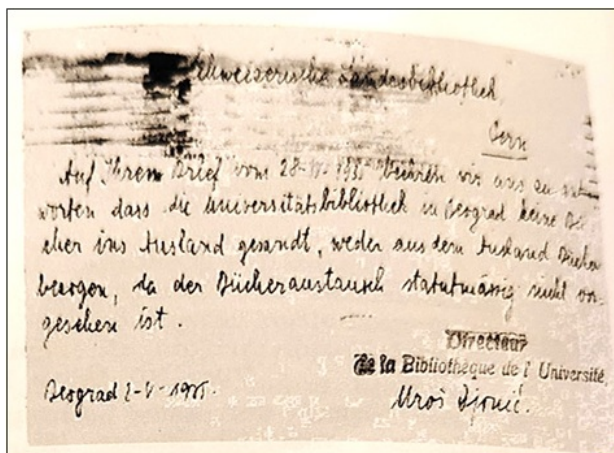 Schweizerische Landesbibliothek
Bern
Auf Ihrem Brief vom 28-IV-1935 beehren wir uns zu ant-
worten dass die Universitätsbibliothek in Beograd keine Bü-
cher ins Ausland gesandt, weder aus dem Ausland Bücher
bezogen, da der Bücheraustausch statutmässig nicht vor-
gesehen ist.
Directeur
de la Bibliothèque de l'Université
Beograd 2-V-1935.
Uroš Djonić.